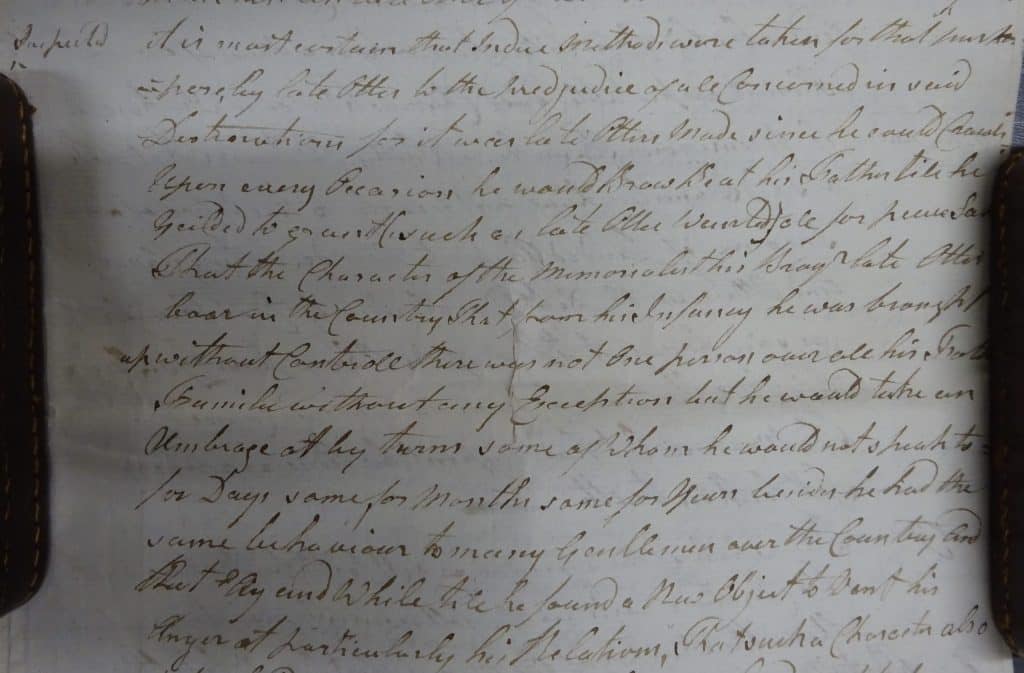 it is most certain that Indue Methods were taken for that pur
pose, by late Otter to the predjudice of all Concerned in said
Destinations for it was late Otters Made since he could
Upon every Occasion he would Brow Beat his Father till he
Yeilded to grant such as late Otter Wanted all for peace Sak
That the Character of the Memorialist his Broyr late Otter
boar in the Country That from his Infancy he was brought
up without Controll there was not One person over all his
Familie without any Exception but he would take an
Umbrage at by turns some of Whom he would not speak to
for Days some for Months some for Years besides he had the
same behaviour to many Gentlemen over the Country and
that Ay and While till he found a New Object to Vent his
Anger at particularly his Relations, That such a Character also